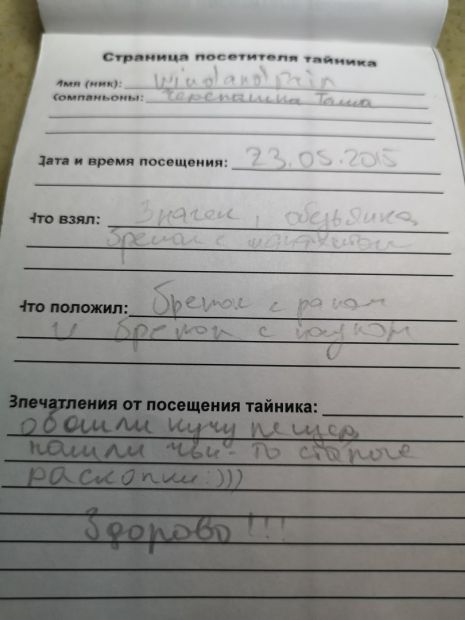 Страница посетителя тайника
Имя (ник): Wind and Rain
Компаньоны: Черепашка Таша
Дата и время посещения: 23.05.2015
Что взял: Значек, обезьянка,
брелок с
Что положил: Брелок с раком
и брелок с пауком
Впечатления от посещения тайника:
обошли кучу пещер,
нашли чьи-то старые
раскопки:)))
Здорово!!!